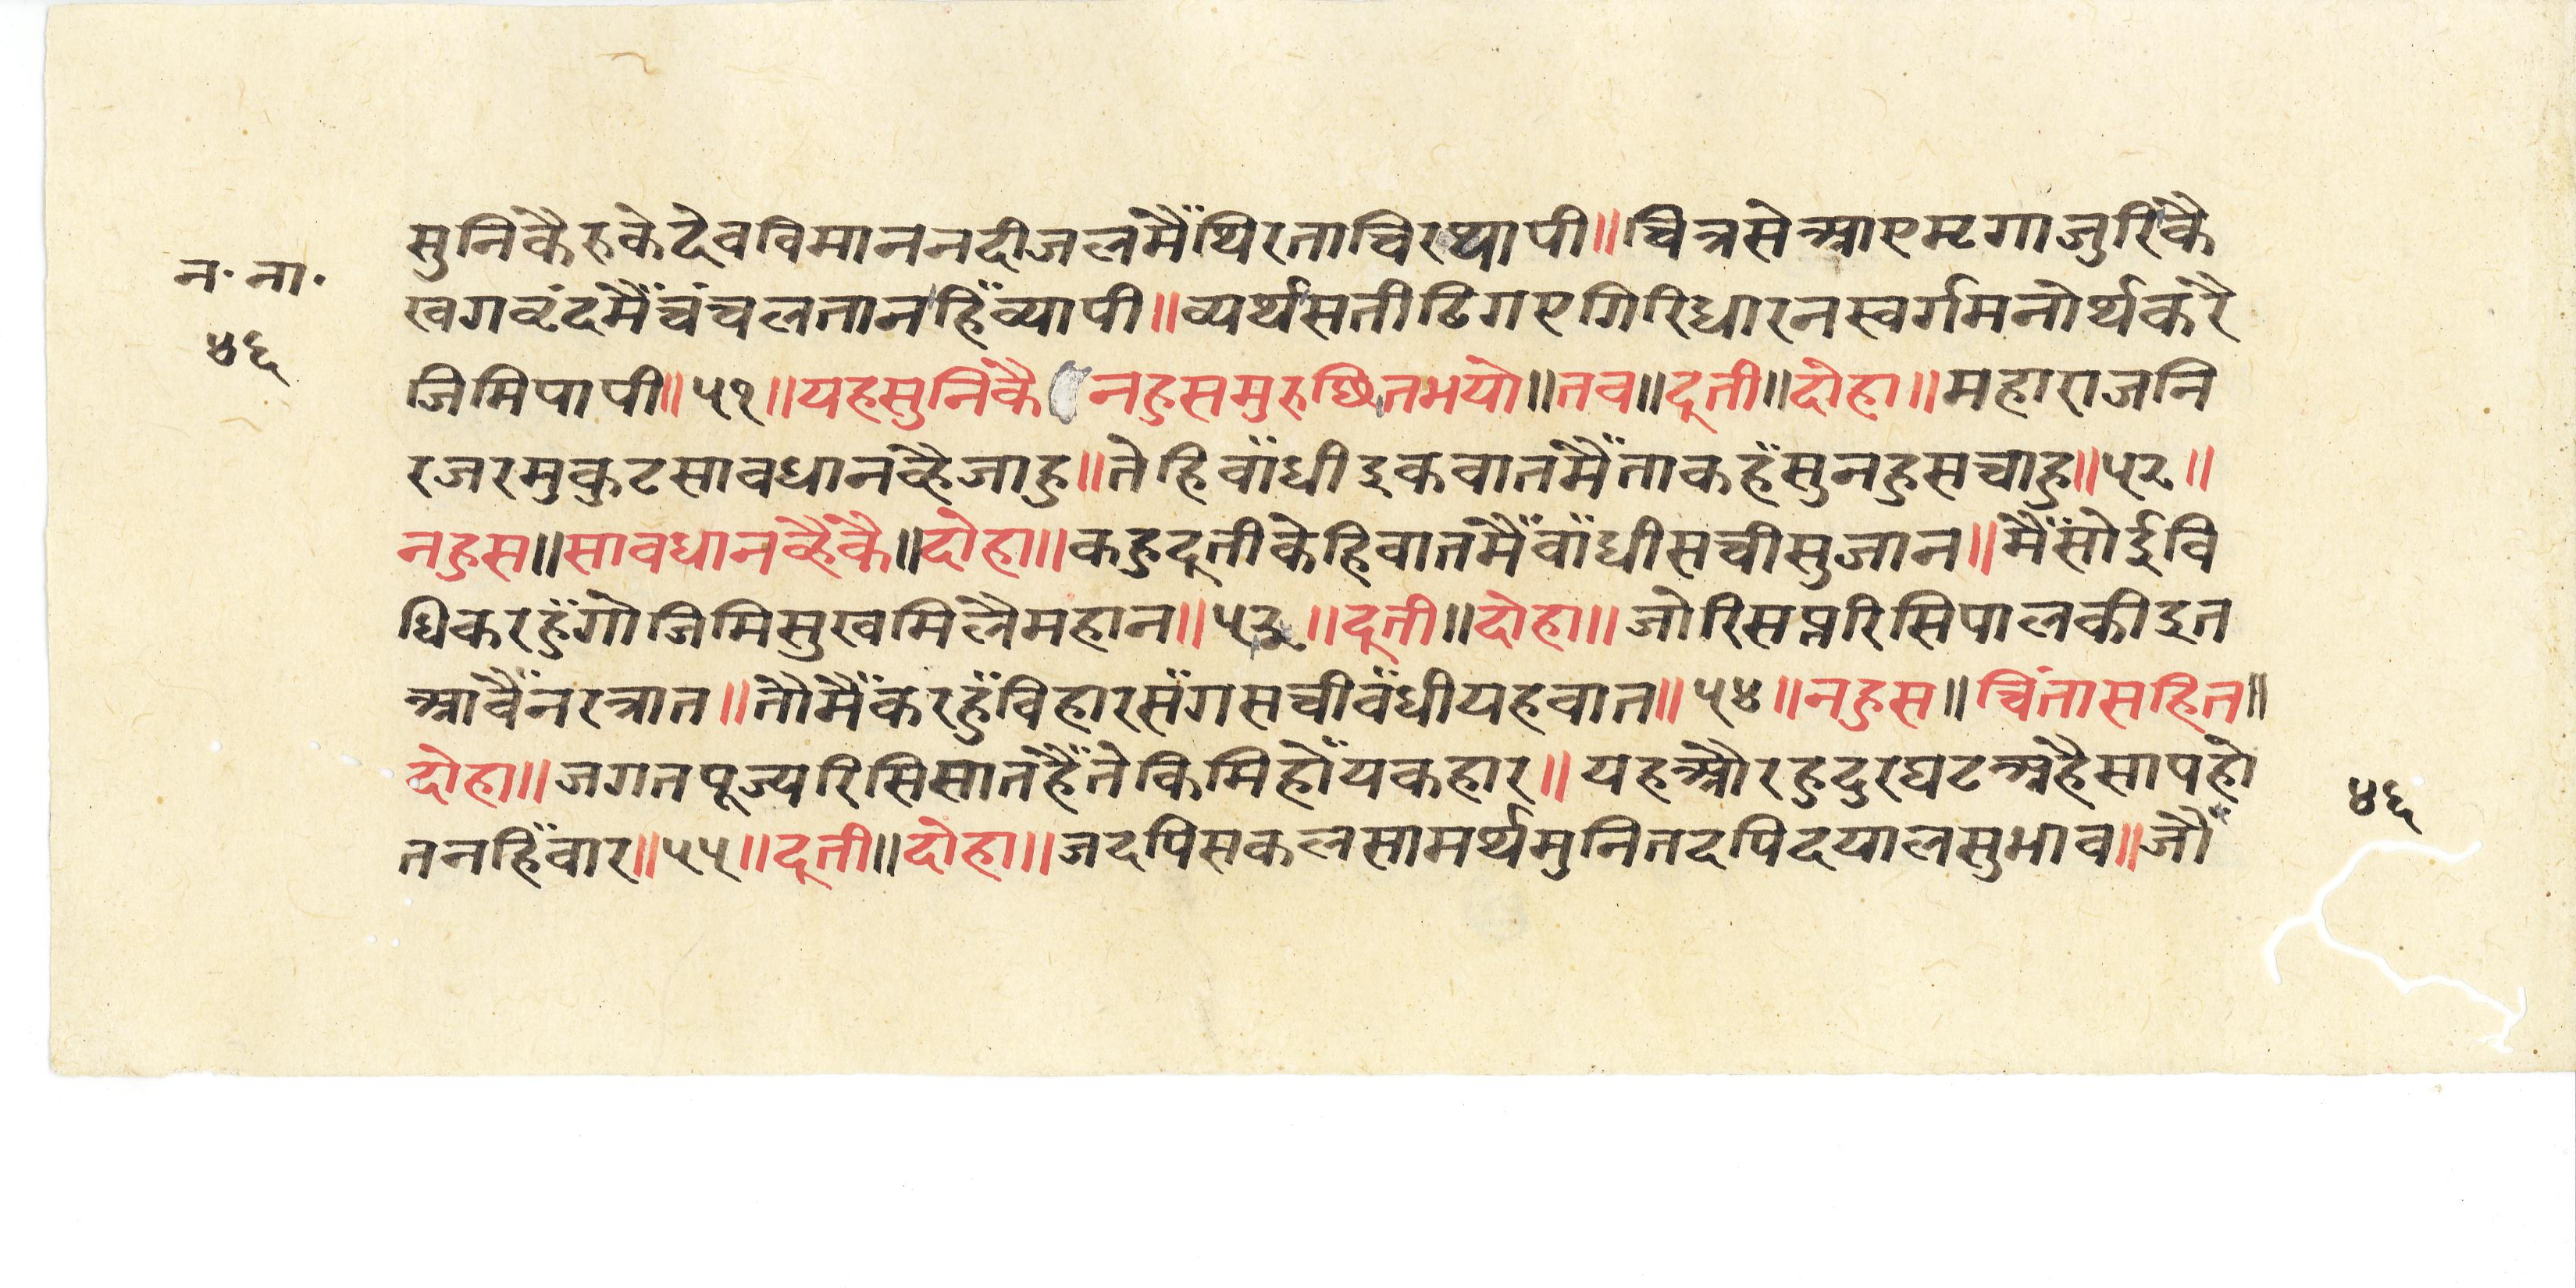 न॰ ना॰
४६
सुनिकैरुकेदेवविमाननदीजलमैँथिरताचिरथापी॥चित्रसेआएमृगाजुरिकै
खगवृंदमैँचंचलतानहिँव्यापी॥व्यर्थसतीढिगएगिरिधारनस्वर्गमनोर्थकरै
जिमिपापी॥५१॥यहसुनिकै नहुसमुरुछितभयो॥तब॥दूती॥दोहा॥महाराजनि
रजरमुकुटसावधानव्हैजाहु॥तेहिवाँधीइकवातमैँताकहँसुनहुसचाहु॥५२॥
नहुस॥सावधानव्हैकै॥दोहा॥कहुदूतीकेहिवातमैँवाँधीसचीसुजान॥मैँसोईवि
धिकरहुँगोजिमिसुखमिलैमहान॥५३॥दूती॥दोहा॥जोरिसप्तरिसिपालकीइत
आवैँनरत्रात॥तौमैँकरहुँविहारसँगसचीवँधीयहवात॥५४॥नहुस॥चिंतासहित॥
दोहा॥जगतपूज्यरिसिसातहैँतेकिमिहोँयकहार॥यहऔरहुदुरघटअहैसापहो
तनहिँवार॥५५॥दूती॥दोहा॥जदपिसकलसामर्थमुनितदपिदयालसुभाव॥जौँ
४६